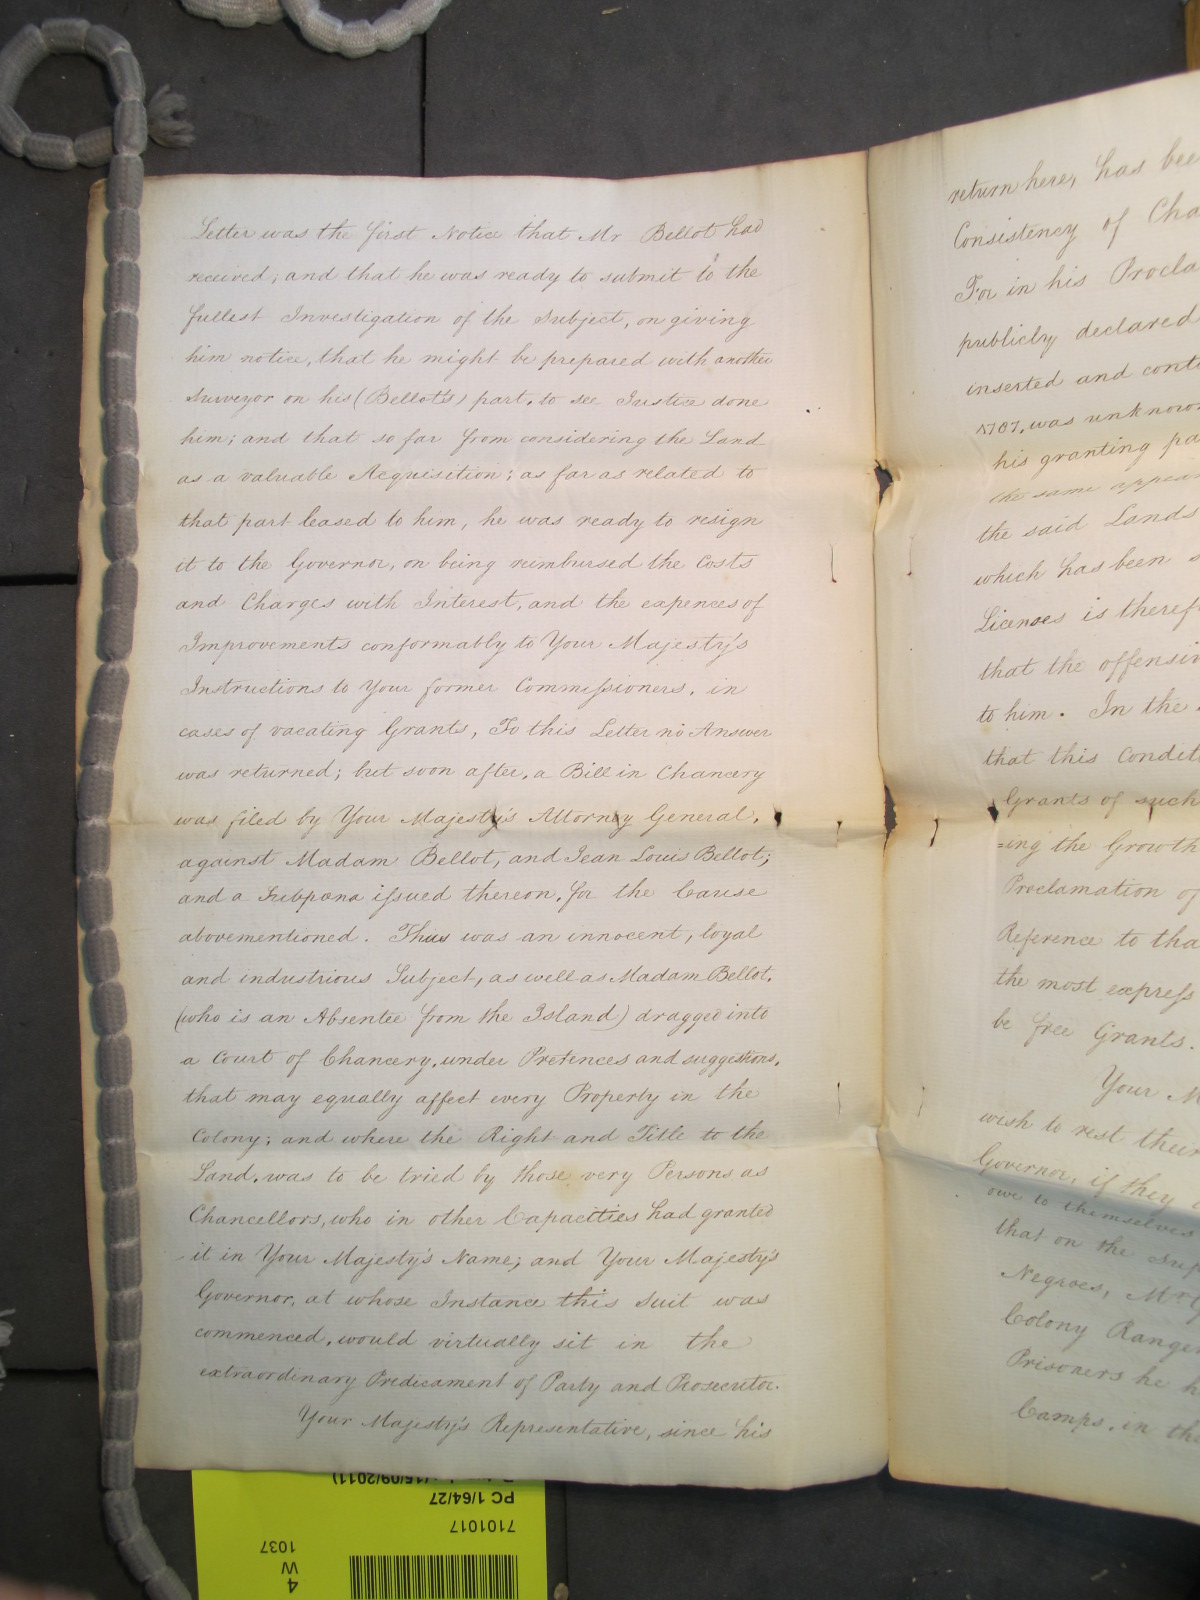 Letter was the first Notice that Mr Bellot had
received; and that he was ready to submit to the
fullest Investigation of the Subject, on giving
him notice, that he might be prepared with another
Surveyor on his (Bellott's) part, to see Justice done
him; and that so far from considering the Land
as a valuable Acquisition; as far as related to
that part leased to him, he was ready to resign
it to the Governor, on being reimbursed the Costs
and Charges with Interest, and the expences of
Improvements conformably to Your Majesty's
Instructions to Your former Commissioners, in
cases of vacating Grants, To this Letter no Answer
was returned; but soon after, a Bill in Chancery
was filed by Your Majesty's Attorney General,
against Madam Bellot, and Jean Louis Bellot;
and a Subpœna issued thereon, for the Cause
abovementioned. Thus was an innocent, loyal
and industrious Subject, as well as Madam Bellot,
(who is an Absentee from the Island) dragged into
a Court of Chancery, under Pretences and suggestions,
that may equally affect every Property in the
Colony; and where the Right and Title to the
Land, was to be tried by those very Persons as
Chancellors, who in other Capacities had granted
it in Your Majesty's Name; and Your Majesty's
Governor, at whose Instance this Suit was
commenced, would virtually sit in the
extraordinary Predicament of Party and Prosecutor.
Your Majesty's Representative, since his
return here, has bee
Consistency of Cha
For in his Procla
publicly declared
inserted and conte
1787, was unknow
his granting pa
the same appear
the said Lands
which has been
Licenses is theref
that the offensiv
to him. In the
that this Condit
Grants of such
=ing the Growth
Proclamation of
Reference to tha
the most express
be free Grants.
Your M
wish to rest thei
Governor, if they
owe to themselves
that on the
Negroes,
Colony Range
Prisoners he h
Camps, in th
(15/09/2011)
PC 1/64/27
7101017
4
W
1037